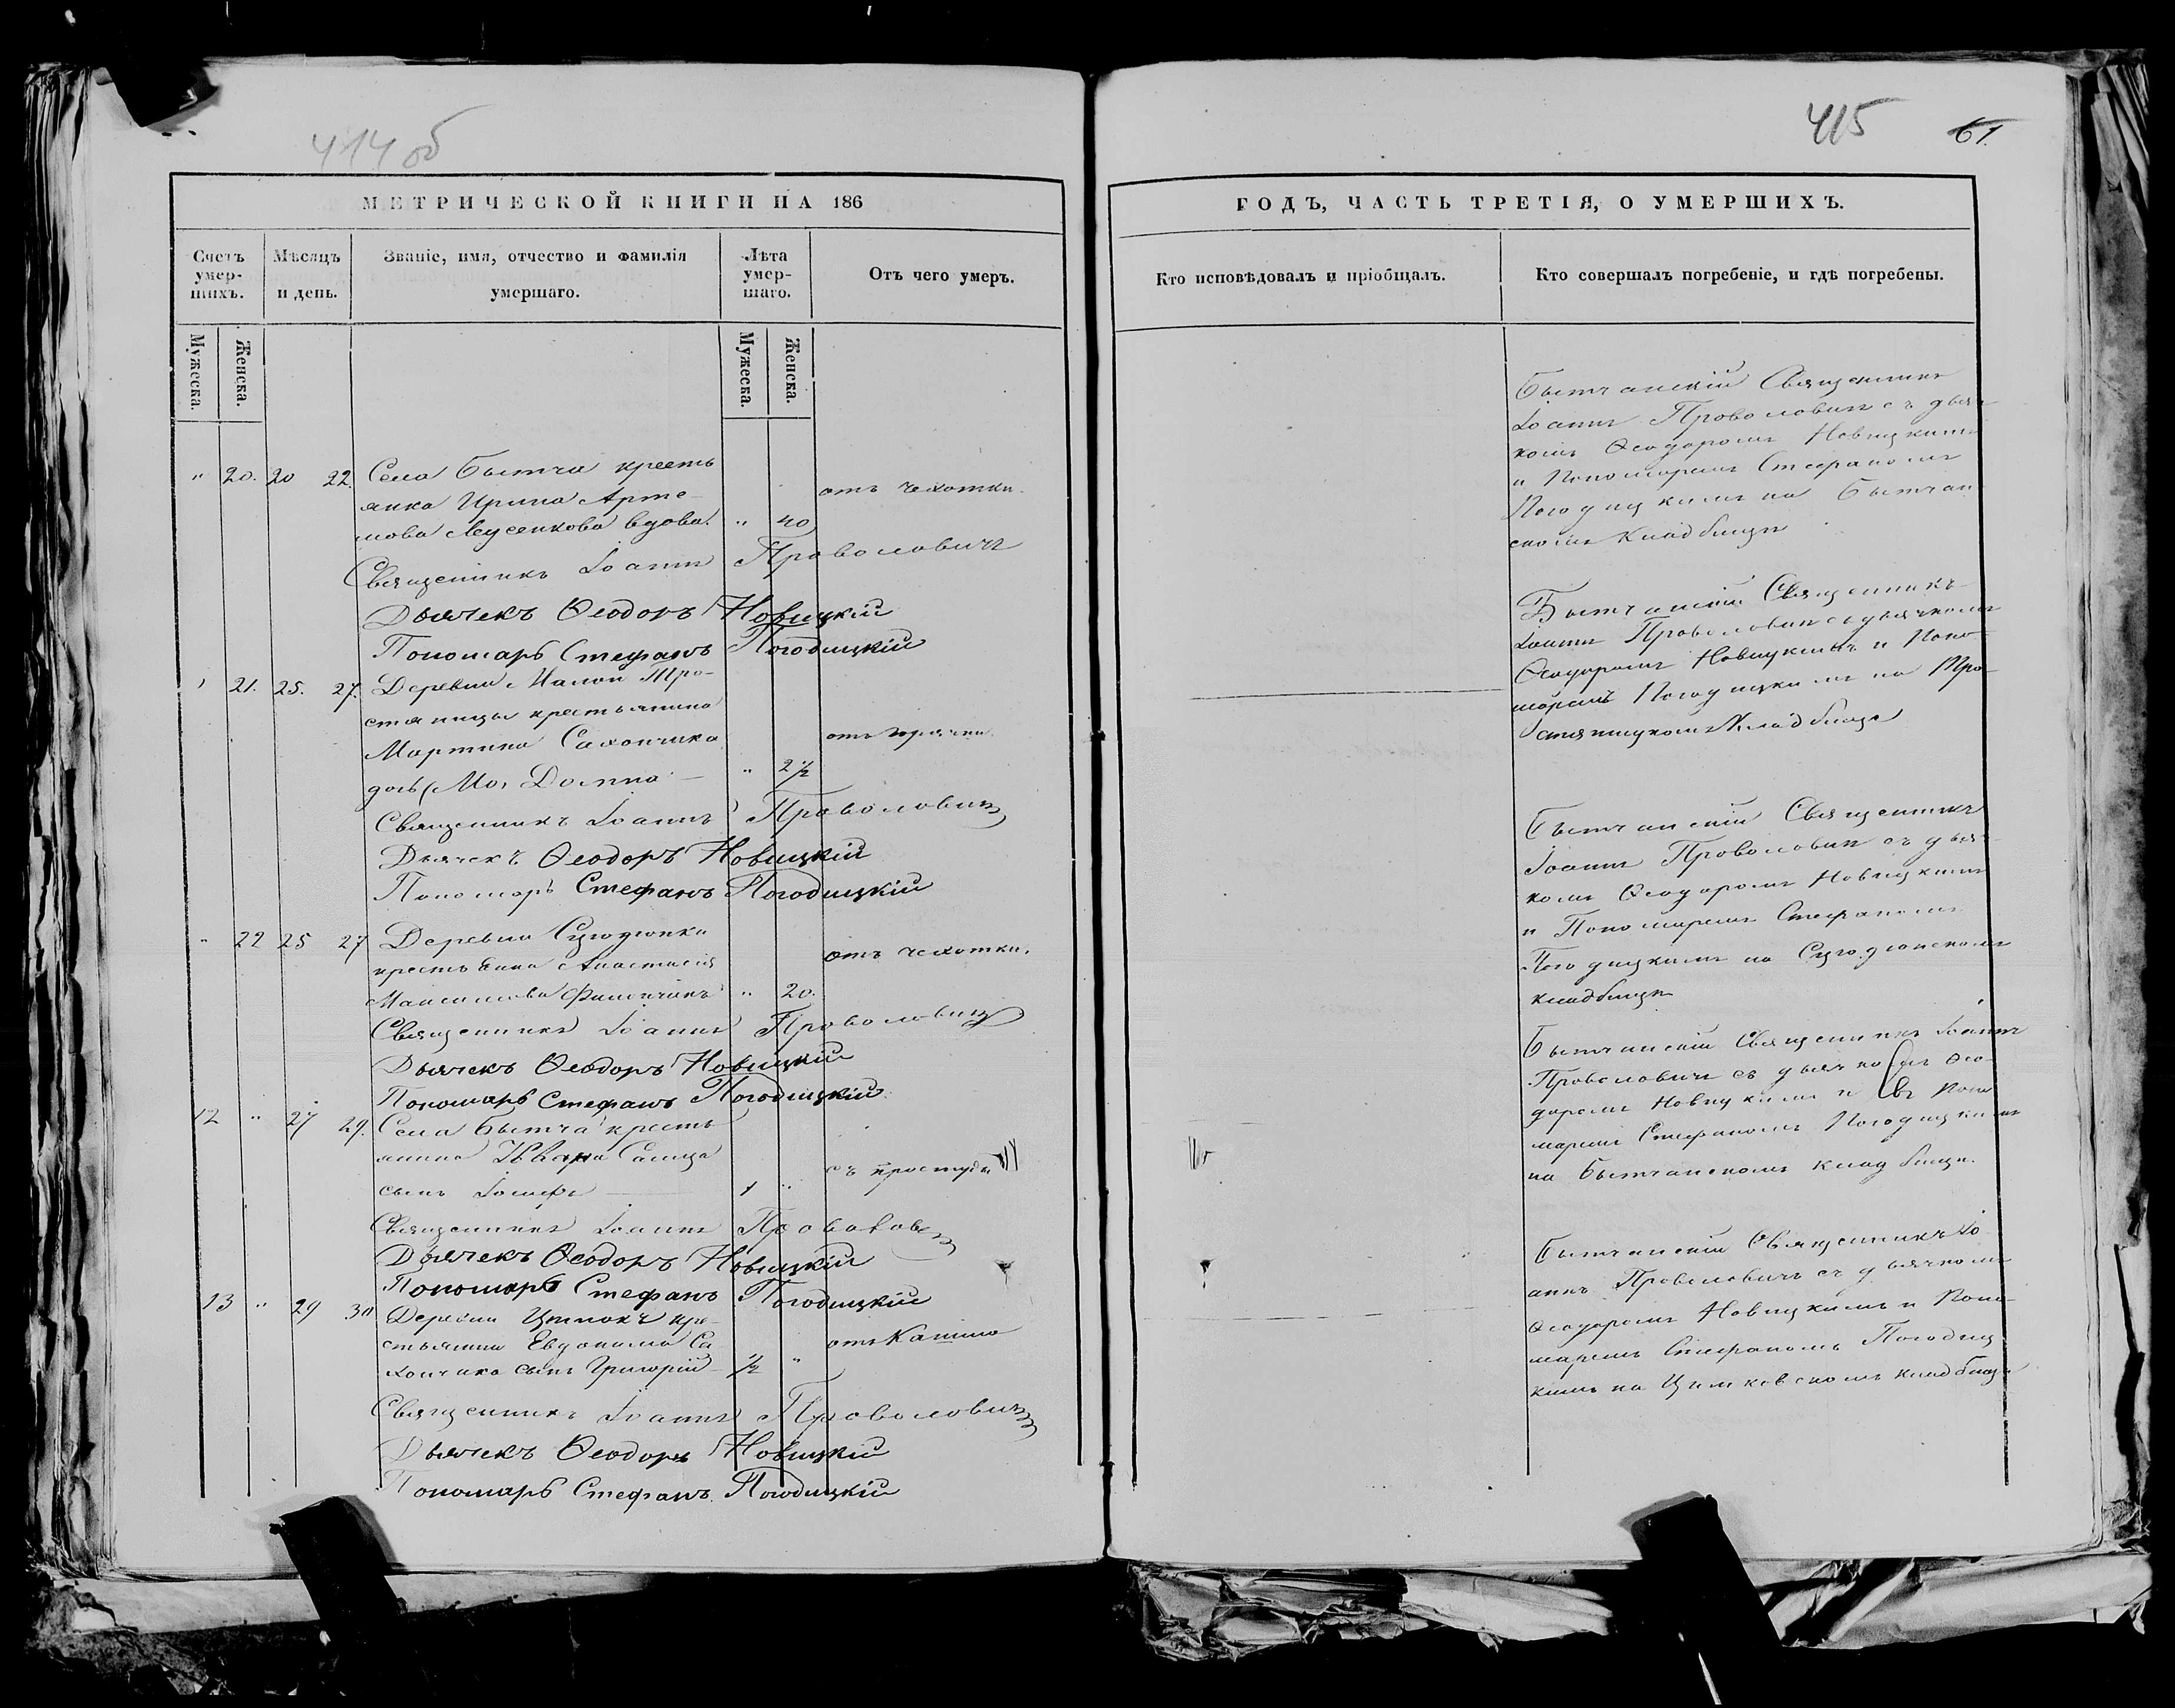 414 об
МЕТРИЧЕСКОЙ КНИГИ НА 186
Счетъ умер- шихъ.
Мѣсяцъ и день.
Званіе, имя, отчество и фамилія умершаго.
Лѣта умер- шаго.
Отъ чего умеръ.
Мужеска.
Женска.
Мужеска.
Женска.
" 20. 20 22. Села Бытча кресть
янка Ирина Арте- отъ чехотки.
мова вдова. " 40
Священникъ Іоаннъ Проволовичъ
Дьячекъ Ѳеодоръ Новицкій
Пономарь Стефанъ Погодицкій
21. 25. 27. Деревни Малой Тро-
стяницы крестьянина
Мартина Сахончика отъ горячки
дочь Домна " 2 1/2
Священникъ Іоаннъ Проволовичъ
Дьячекъ Ѳеодоръ Новицкій
Пономарь Стефанъ Погодицкій
" 22 25 27 Деревни
крестьянка Анастасія отъ чехотки.
" 20.
Священникъ Іоаннъ Проволовичъ
Дьячекъ Ѳеодоръ Новицкій
Пономарь Стефанъ Погодицкій
12 " 27 29. Села Бытча кресть
янина Ивана
сынъ Іосифъ 1 " съ простуды
Священникъ Іоаннъ Проволовичъ
Дьячекъ Ѳеодоръ Новицкій
Пономарь Стефанъ Погодицкій
13 " 29 30 Деревни Цитокъ кре-
стьянина Евдокима Са отъ Кашлю
хончика сынъ Григорій 1/2 "
Священникъ Іоаннъ Проволовичъ
Дьячекъ Ѳеодоръ Новицкій
Пономарь Стефанъ Погодицкій
415 61.
ГОДЪ, ЧАСТЬ ТРЕТІЯ, О УМЕРШИХЪ.
Кто исповѣдовалъ и пріобщалъ.
Кто совершалъ погребеніе, и гдѣ погребены.
Бытчанскій Священникъ
Іоаннъ Проволовичъ съ дьяч
комъ Ѳеодоромъ Новицкимъ
и Пономаремъ Стефаномъ
Погодицкимъ на Бытчан
скомъ Кладбищѣ
Бытчанскій Священникъ
Іоаннъ Проволовичъ съ дьячкомъ
Ѳеодоромъ Новицкимъ и Поно-
маремъ Погодицкимъ на Тро-
стяницкомъ Кладбищѣ
Бытчанскій Священникъ
Іоаннъ Проволовичъ съ дьяч-
комъ Ѳеодоромъ Новицкимъ
и Пономаремъ Стефаномъ
Погодицкимъ на
кладбищѣ
Бытчанскій Священникъ Іоаннъ
Проволовичъ съ дьячкомъ Ѳео-
доромъ Новицкимъ и съ Поно
маремъ Стефаномъ Погодицкимъ
на Бытчанскомъ кладбищѣ.
Бытчанскій Священникъ Іо
аннъ Проволовичъ съ дьячкомъ
Ѳеодоромъ Новицкимъ и Поно-
маремъ Стефаномъ Погодиц
кимъ на кладбищѣ